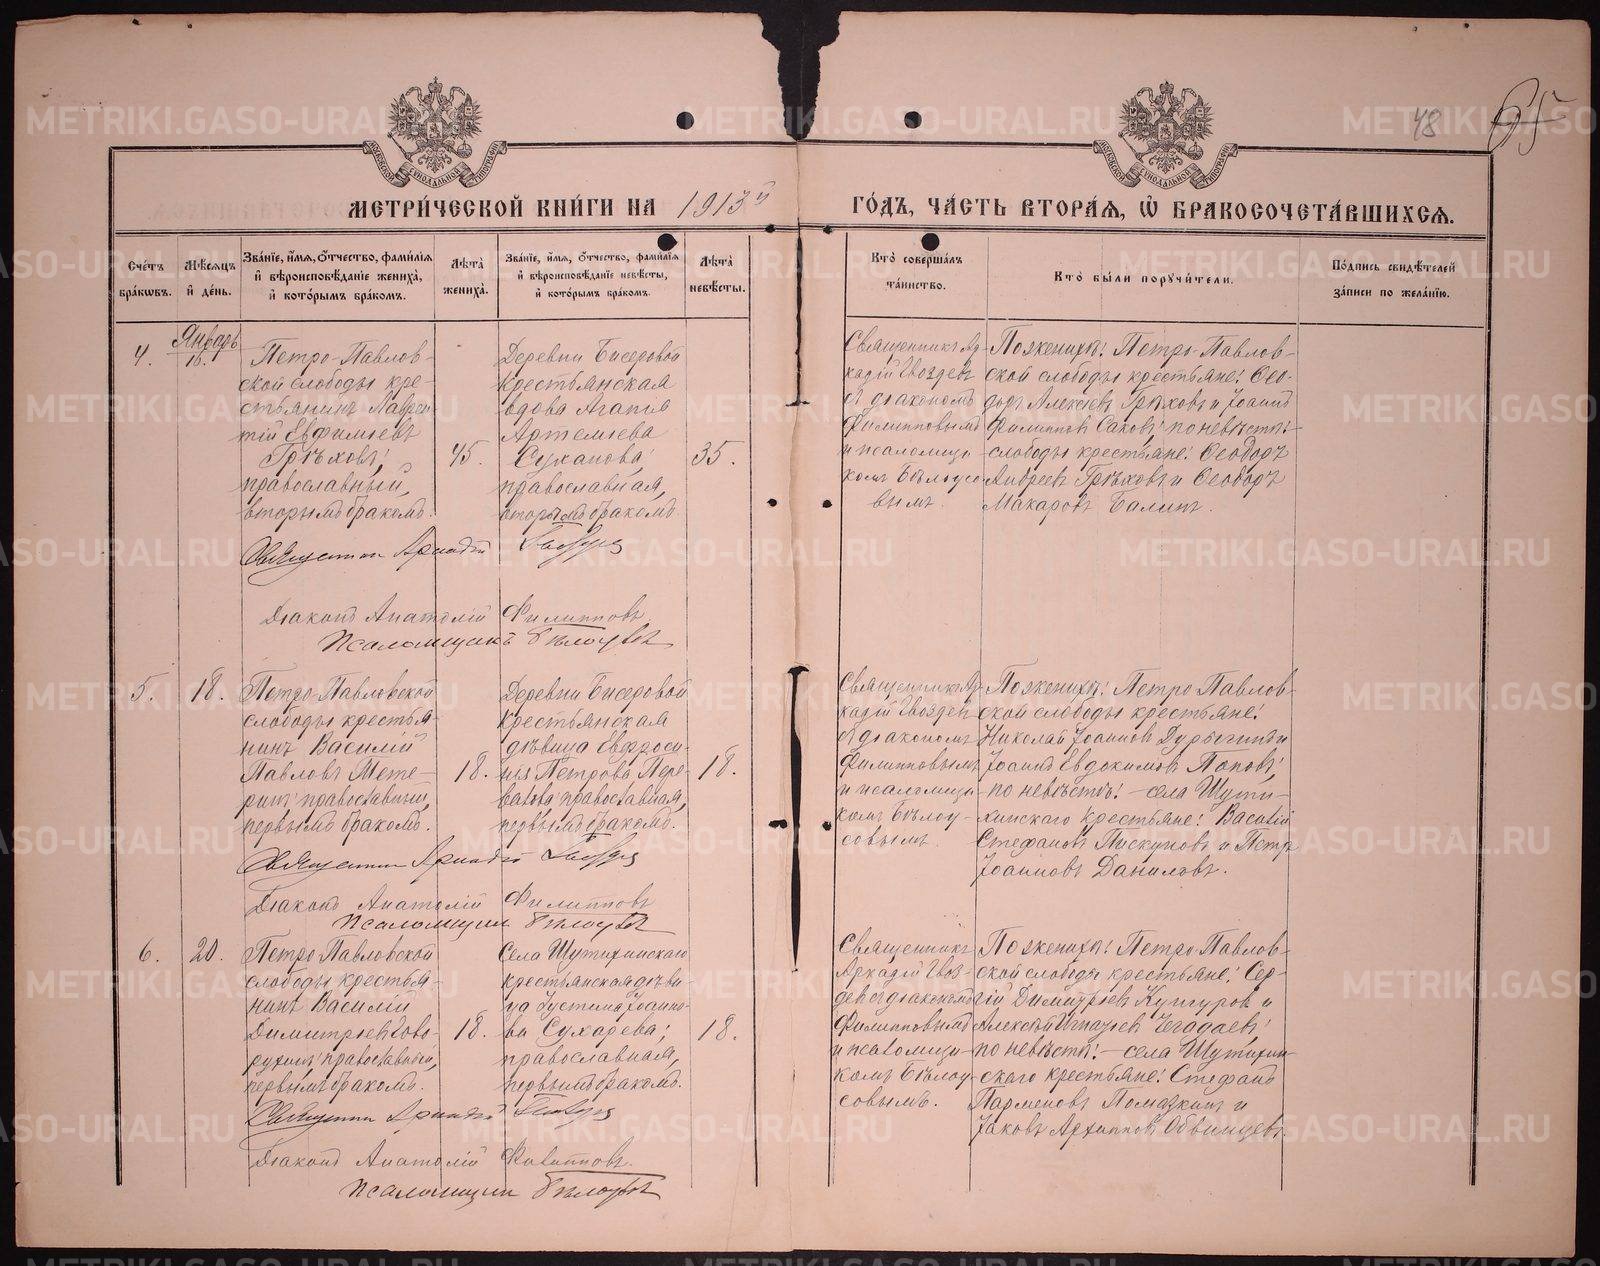 48
65
МОСКОВСКОЙ СУНОДАЛЬНОЙ ТИПОГРАФІИ
МОСКОВСКОЙ СУНОДАЛЬНОЙ ТИПОГРАФІИ
МЕТРИ́ЧЕСКОЙ КНИ́ГИ НА 1913й
ГО́ДЪ, ЧА́СТЬ ВТОРА́Я, Ѽ БРАКОСОЧЕТА́ВШИХСЯ.
Сче́тъ бра́кѡвъ.
Мѣ́сяцъ и҆ де́нь.
Зва́нїе, и҆́мя, ѻ҆́тчество, фами́лїя и҆ вѣроисповѣ́данїе жениха̀, и҆ кото́рымъ бра́комъ.
Лѣ́та жениха̀.
Зва́нїе, и҆́мя, ѻ҆́тчество, фами́лїя и҆ вѣроисповѣ́данїе невѣ́сты, и҆ кото́рымъ бра́комъ.
Лѣ́та невѣ́сты.
Кто̀ соверша́лъ та́инство.
Кто̀ бы́ли поручи́тели.
По́дпись свидѣ́телей за́писи по жела́нїю.
4.
Январь
16.
Петро-Павлов-
ской слободы кре-
стьянинъ Лаврен-
тій Евфиміевъ
Грѣховъ;
православный,
вторымъ бракомъ.
45.
Деревни Бисеровой
крестьянская
вдова Агапія
Артеміева
Суханова;
православная,
вторымъ бракомъ.
35.
Священникъ Ар-
кадій Гвоздевъ
съ діакономъ
Филипповымъ
и псаломщи-
комъ Бѣлоусо-
вымъ.
По женихѣ: Петро-Павлов-
ской слободы крестьяне: Ѳео-
доръ Алексіевъ Грѣховъ и Іоаннъ
Филипповъ Саковъ; по невѣстѣ:
слободы крестьяне: Ѳеодоръ
Андреевъ Грѣховъ и Ѳеодоръ
Макаровъ Балинъ.
Священникъ Аркадій Гвоздевъ
Діаконъ Анатолій Филипповъ
Псаломщикъ Бѣлоусовъ
5.
18.
Петро-Павловской
слободы крестья-
нинъ Василій
Павловъ Мете-
ринъ; православный,
первымъ бракомъ.
18.
Деревни Бисеровой
крестьянская
дѣвица Евфроси-
нія Петрова Пере-
валова; православная,
первымъ бракомъ.
18.
Священникъ Ар-
кадій Гвоздевъ
съ діакономъ
Филипповымъ
и псаломщи-
комъ Бѣлоу-
совымъ.
По женихѣ: Петро-Павлов-
ской слободы крестьяне:
Николай Іоанновъ Дурыгинъ и
Іоаннъ Евдокимовъ Поповъ;
по невѣстѣ: села Шути-
хинскаго крестьяне: Василій
Стефановъ Пискуновъ и Петръ
Іоанновъ Даниловъ.
Священникъ Аркадій Гвоздевъ
Діаконъ Анатолій Филипповъ
Псаломщикъ Бѣлоусовъ
6.
20.
Петро-Павловской
слободы крестья-
нинъ Василій
Димитріевъ Гово-
рухинъ; православный,
первымъ бракомъ.
18.
Села Шутихинскаго
крестьянская дѣви-
ца Іустина Іоанно-
ва Сухарева;
православная,
первымъ бракомъ.
18.
Священникъ
Аркадій Гвоз-
девъ съ діакономъ
Филипповымъ
и псаломщи-
комъ Бѣлоу-
совымъ.
По женихѣ: Петро-Павлов-
ской слободы крестьяне: Сер-
гій Димитріевъ Кунгуровъ и
Алексѣй Игнатіевъ Чегадаевъ;
по невѣстѣ: села Шутихин-
скаго крестьяне: Стефанъ
Парменовъ Помазкинъ и
Іаковъ Архипповъ Обвинцевъ.
Священникъ Аркадій Гвоздевъ
Діаконъ Анатолій Филипповъ.
Псаломщикъ Бѣлоусовъ
METRIKI.GASO-URAL.RU